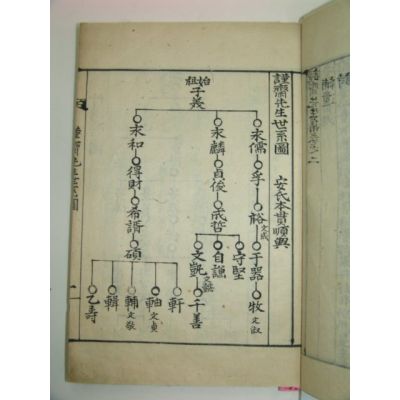 謹齋先生世系圖
安氏本貫順興
始祖
子美
永儒
孚
裕 文成
于器
牧 文淑
永麟
貞俊
成哲
守堅
自謹
文凱 文懿
千善
永和
得財
希諝
碩
軒
軸 文貞
輔 文敬
輯
乙壽